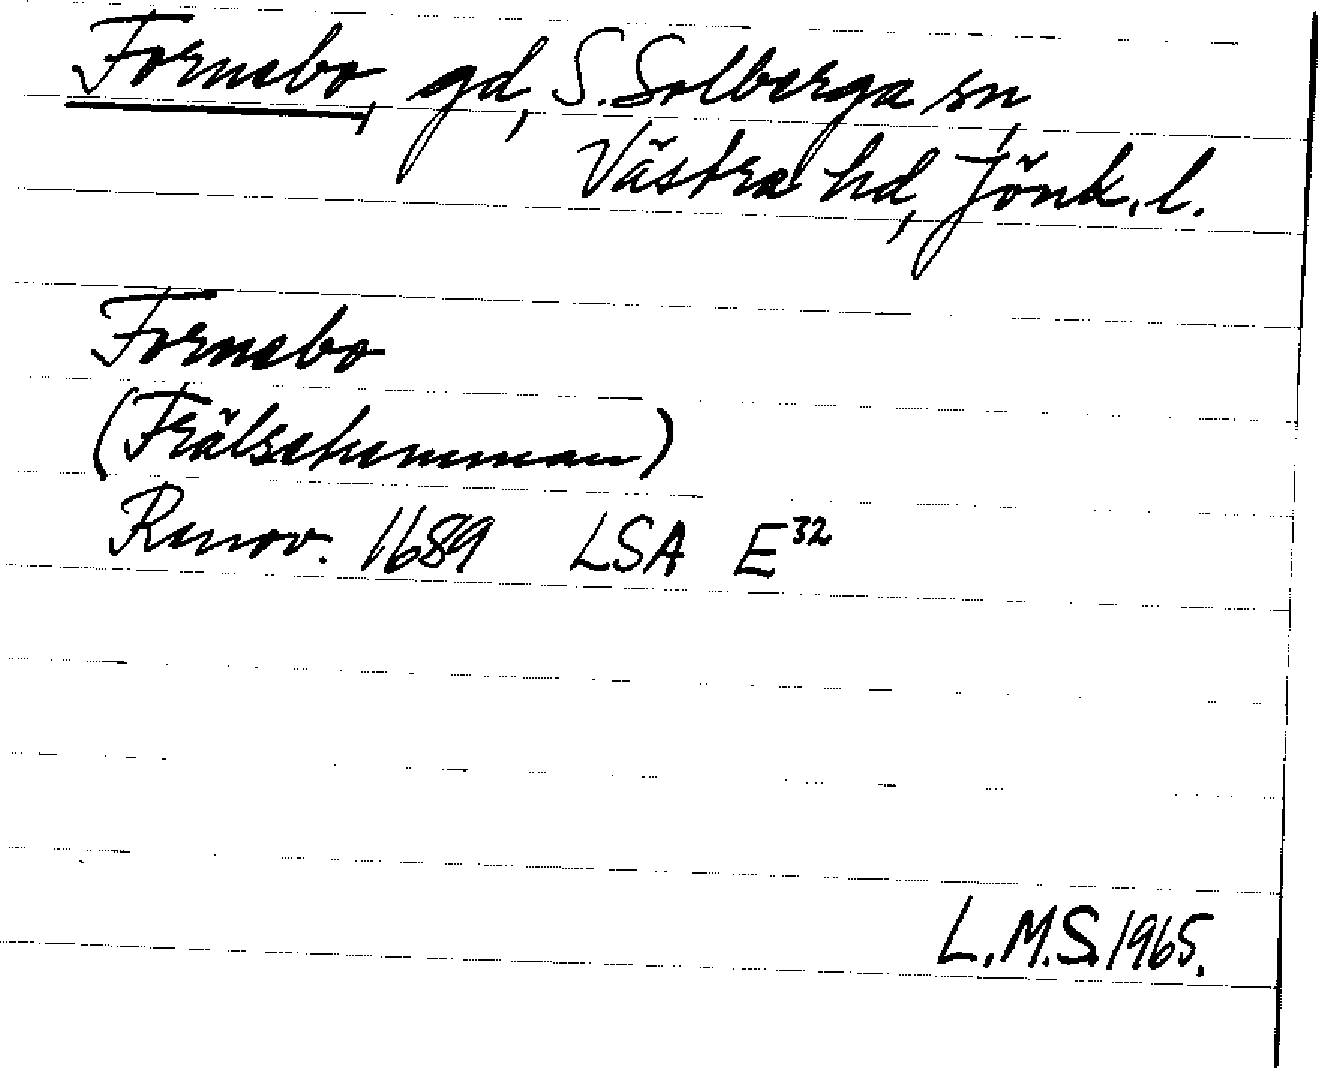 Fornebo, gd, S. Solberga sn,
Västra hd, Jönk. l.
Fornebo
(Frälsehemman)
Renov. 1689 LSA E³²
L.M.S. 1965.